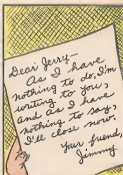 Dear Jerry—
As I have
nothing to do, I'm
writing to you,
and as I have
nothing to say,
I'll close now.
Your friend,
Jimmy